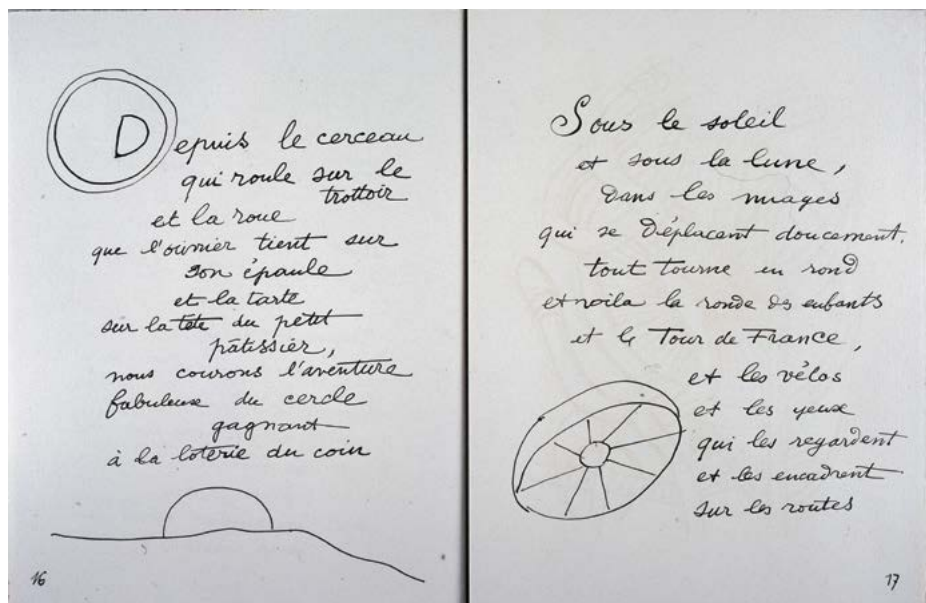 Depuis le cerceau
qui roule sur le
trottoir
et la roue
que l'ouvrier tient sur
son épaule
et la tarte
sur la tête du petit
pâtissier,
nous courons l'aventure
fabuleuse du cercle
gagnant
à la loterie du coin
16
Sous le soleil
et sous la lune,
dans les nuages
qui se déplacent doucement,
tout tourne en rond
et voila la ronde des enfants
et le Tour de France,
et les vélos
et les yeux
qui les regardent
et les encadrent
sur les routes
17